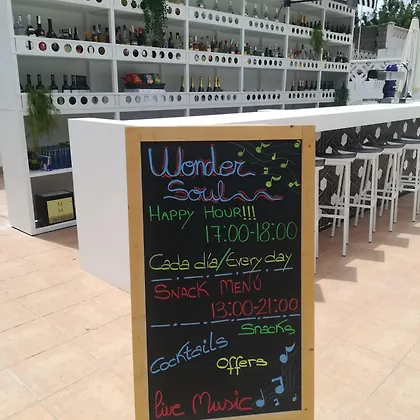 Wonder
Soul
Happy Hour!!!
17:00-18:00
Cada día/Every day
Snack Menú
13:00-21:00
Snacks
Cocktails
Offers
live Music